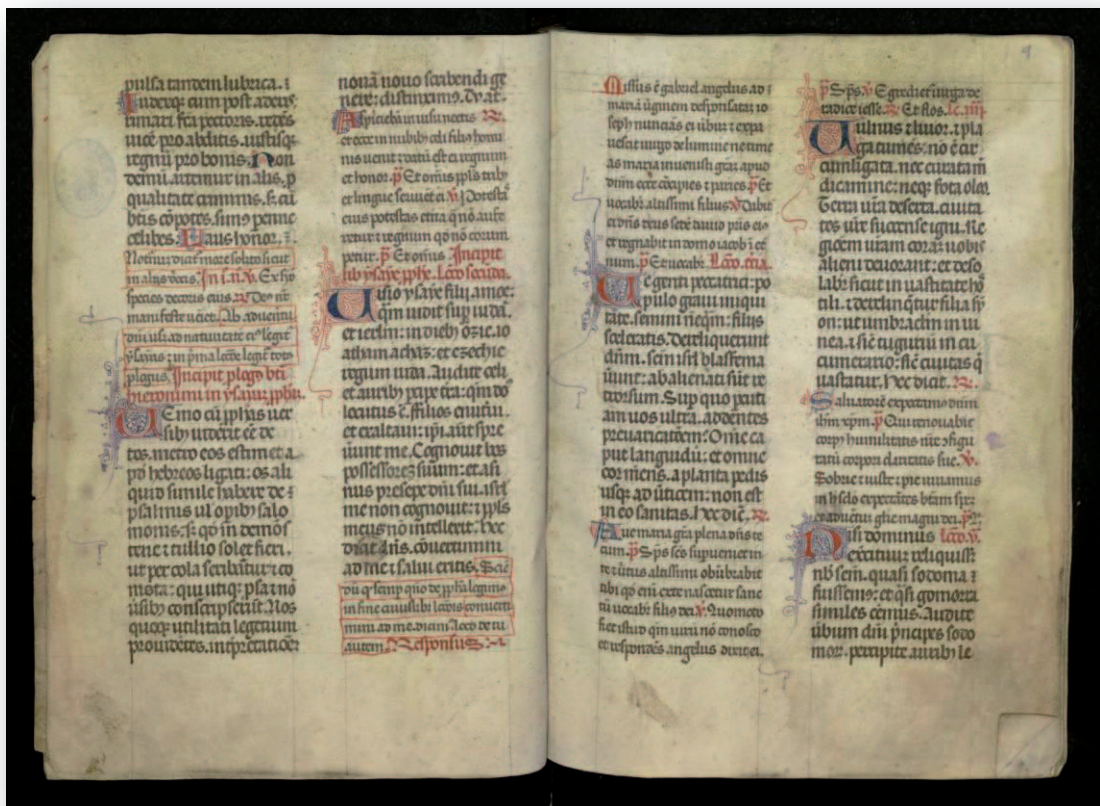 pulsa tandem lubrica. ⁊
Iudexq; cum post adueñ
rimari fc̄a pectoris. reddēs
uicē pro abditis. iustisq;
regnū pro bonis. Non
demū artemur in alis. p̄
qualitate criminis. s; cū
bt̄is cōpotes. simꝰ penne
celibes. Laus honor. ⁊.
in aliis uocis. In .i. n̄. ꝟ. Ex syō
species decoris eius. ꝟ. Deꝰ nr̄
manifeste ueīet. Ab aduentu
dn̄i usq; ad natiuitatē
ysayas: ⁊ in p̄ma lectōe legit᷑ totꝰ
plogus. Incipit plogꝰ bt̄i
hieronimi in ysayā ꝓph̄.
Nemo cū ꝓph̄as uer
sibꝫ uiderit eē de
tos. metro eos estimet a
pd̓ hebreos ligari: ⁊ ali
quid simile habere de
psalmis ul̓ opibꝫ salo
monis. S; qd̓ in demos
tene ⁊ tullio solet fieri.
ut per cola scribātur ⁊ co
mata: qui utiq; psa ⁊ nō
u̓sibꝫ conscripserūt. Nos
quoq; utilitati legentium
prouidētes. int̓pretatiōeꝫ
nouā nouo scribendi ge
nere: distinximꝰ. Tu aūt.
Aspiciebā in uisu noctis ꝶ.
et ecce in nubibꝫ celi filiꝰ homi
nis uenit: ⁊ datū est ei regnum
et honor. p̄ Et om̄is ppl̓s tribꝫ
et lingue seruiēt ei. ꝟ. Potestas
eius potestas etn̄a q̄ nō aufe
retur: ⁊ regnum qd̓ nō corum
petur. p̄ Et om̄is. Incipit
lib̓ ysaye ꝓph̄e. Lcō secūda.
Uisio ysaye filij amos:
qm̄ uidit sup iudā.
et ierl̄m: in diebꝫ ozie. io
atham achaz: et ezechie
regum iuda. Audite celi
et auribꝫ ꝑcipe t̓ra: qm̄ dn̄s
locutus ē. Filios enutriui.
et exaltaui: ip̄i aūt spre
uerunt me. Cognouit bos
possessorē suum: et asi
nus presepe dn̄i sui. isrl̓
me non cognouit: ⁊ ppl̓s
meus nō intellexit. Hec
dicit dn̄s. cōuertimini
ad me: ⁊ salui eritis.
in fine cuiuslibꝫ lectōis conuerti
mini ad me. dicim̄. Lcō de tu
autem. Responsus.
Missus ē gabriel angelus ad
mariā uirginem desponsatā io
seph nuncians ei uerbū: ⁊ expa
uescit uirgo de lumine ne time
as maria inuenisti grām apud
dn̄m ecce cōcipies ⁊ paries. p̄ Et
uocabit̓ altissimi filius. ꝟ. Dabit
ei dn̄s deus sedē dauid pris eiꝰ
et regnabit in domo iacob ī et̓
num. p̄ Et uocabit̓. Lcō. t̓cia.
Ue genti peccatrici: po
pulo graui iniqui
tate. semini neq̄m: filiis
sceleratis. Dereliquerunt
dn̄m. scm̄ isrl̓ blasfema
uerunt: abalienati sunt re
trorsum. Sup quo pcuti
am uos ultra. addentes
preuaricatiōem: Om̄e ca
put languidū: et omne
cor merens. a planta pedis
usq; ad u̓ticem: non est
in eo sanitas. Hec dic̄. ꝶ.
Aue maria grā plena dn̄s te
cum. p̄ Sp̄s scs̄ supueniet in
te ⁊ u̓tus altissimi obūbrabit
tibi qd̓ eni ex te nascetur sanc
tū uocabit̓ filiꝰ dei. ꝟ. Quomodo
fiet istud qm̄ uirū nō conosco
et respondēs angelus dixit ei.
9
p̄ Sp̄s. ꝟ. Egredietur uirga de
radice iesse. ꝶ. Et flos. Lc̄. iiij
Uulnus ⁊ liuor. ⁊ pla
ga tumēs: nō ē cir
cumligata. nec curata m̄
dicamine: neq; fota oleo.
Terra ur̄a deserta. ciuita
tes ur̄e succense igni. Re
gionem ur̄am corā uobis
alieni deuorant: et deso
labit̓ sicut in uastitate ho
stili. ⁊ derelinq̄tur filia sy
on: ut umbraclm̄ in ui
nea. ⁊ sic̄ tuguriū in cu
cumerario: sic̄ ciuitas q̄
uastatur. Hec dicit. ꝶ.
Saluatorē expectamꝰ dn̄m
ihm̄ xpm̄. p̄ Qui reformabit
corpꝰ humilitatis nr̄e ɔfigu
ratū corpori claritatis sue. ꝟ.
Sobrie ⁊ iuste ⁊ pie uiuamus
in h̓ sclo expectātes btām spē:
et aduentū glie magni dei. p̄.
Nisi dominus Lcō. v.
exercituū reliquisset
nob̓ sem̄. quasi sodoma
fuissemꝰ: et q̄si gomorra
similes eēmus. Audite
u̓bum dn̄i p̄ncipes sodo
mor̄. percipite auribꝫ le